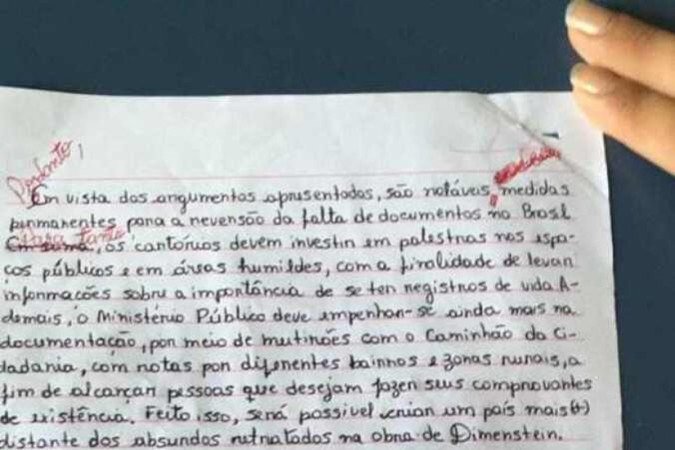 Portanto,
Em vista dos argumentos apresentados, são notáveis, medidas
permanentes para a reversão da falta de documentos no Brasil
Para tanto
Em suma, os cartórios devem investir em palestras nos espa-
ços públicos e em áreas humildes, com a finalidade de levar
informações sobre a importância de se ter registros de vida. A-
demais, o Ministério Público deve empenhar-se ainda mais na
documentação, por meio de mutirões com o Caminhão da Ci-
dadania, com rotas por diferentes bairros e zonas rurais, a
fim de alcançar pessoas que desejam fazer seus comprovantes
de existência. Feito isso, será possível criar um país mais (+)
distante dos absurdos retratados na obra de Dimenstein.